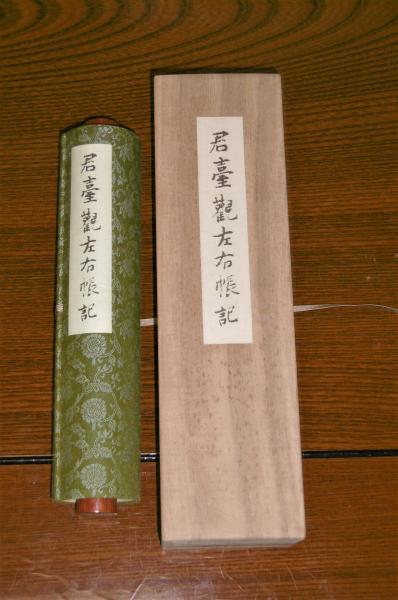 君臺觀左右帳記
君臺觀左右帳記